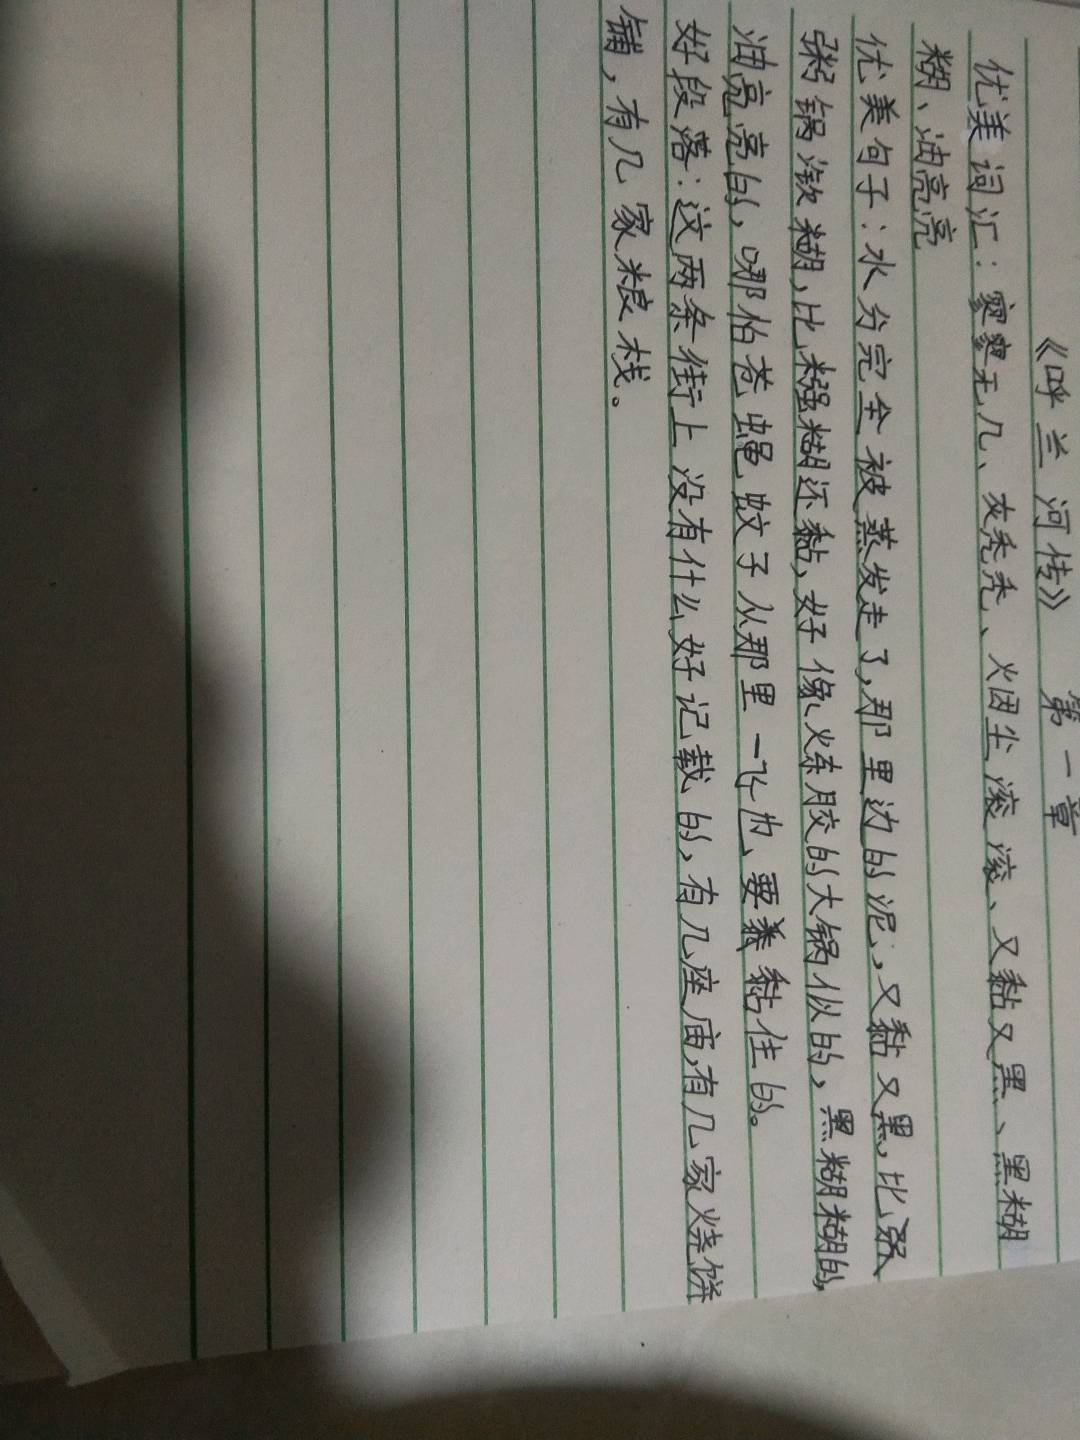 《呼兰河传》 第一章
优美词汇：寥寥无几、灰秃秃、烟尘滚滚、又黏又黑、黑糊
糊、油亮亮
优美句子：水分完全被蒸发走了，那里边的泥，又黏又黑，比
粥锅潋糊，比糨糊还黏，好像炼胶的大锅似的，黑糊糊的，
油亮亮的，哪怕苍蝇蚊子从那里一飞也要黏住的。
好段落：这两条街上没有什么好记载的，有几座庙，有几家烧饼
铺，有几家粮栈。